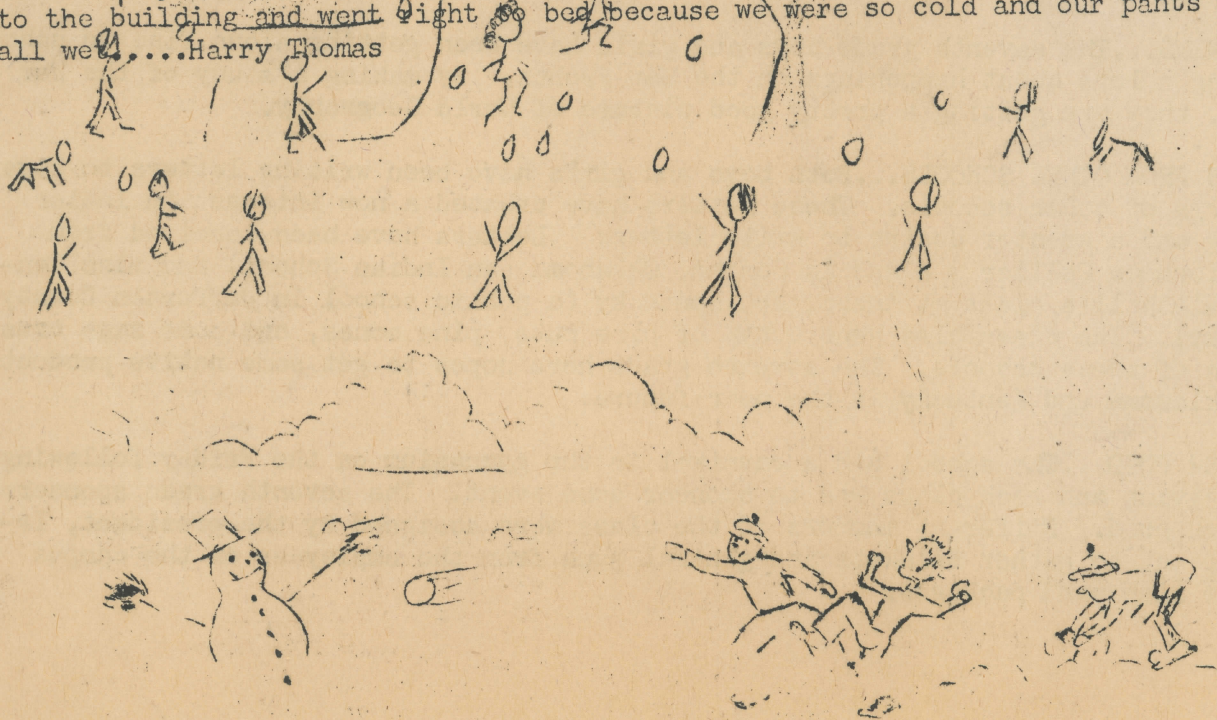 to the building and went right to bed because we were so cold and our pants
all wet.....Harry Thomas